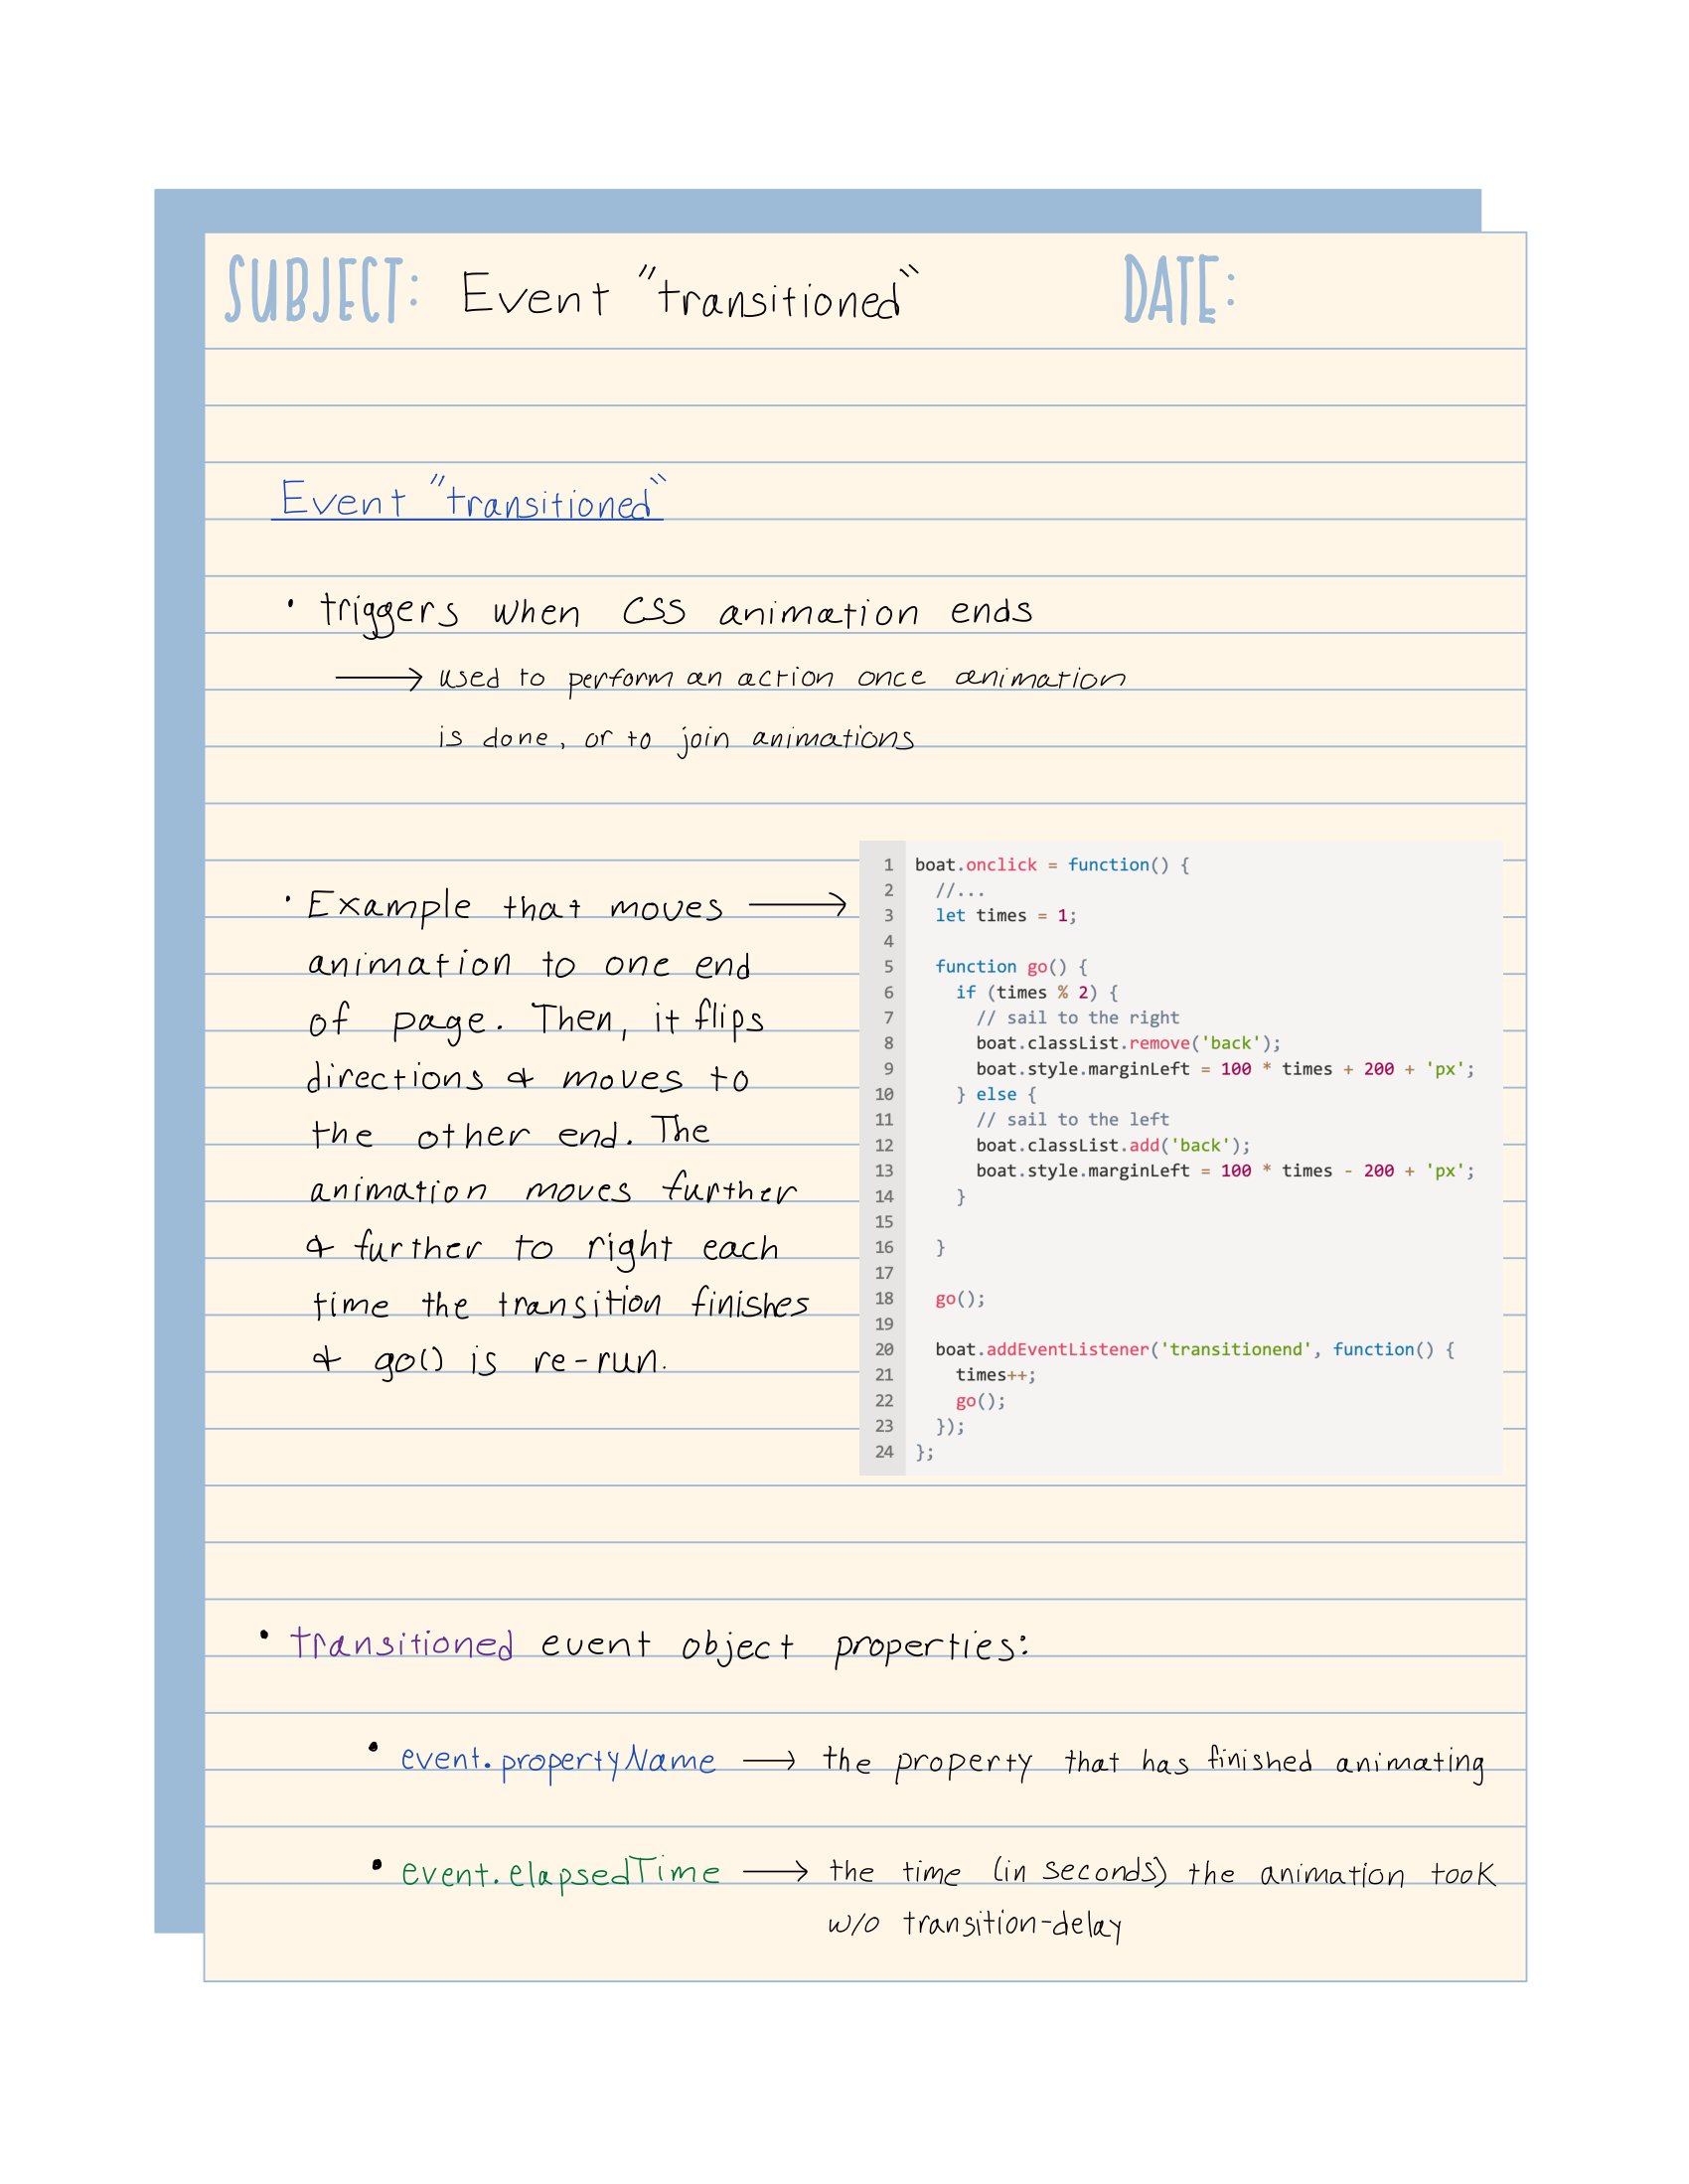 SUBJECT: Event "transitioned" DATE:
Event "transitioned"
• triggers when CSS animation ends
→ used to perform an action once animation
is done, or to join animations
• Example that moves →
animation to one end
of page. Then, it flips
directions & moves to
the other end. The
animation moves further
& further to right each
time the transition finishes
& go() is re-run.
1 boat.onclick = function() {
2   //...
3   let times = 1;
4
5   function go() {
6     if (times % 2) {
7       // sail to the right
8       boat.classList.remove('back');
9       boat.style.marginLeft = 100 * times + 200 + 'px';
10     } else {
11       // sail to the left
12       boat.classList.add('back');
13       boat.style.marginLeft = 100 * times - 200 + 'px';
14     }
15
16   }
17
18   go();
19
20   boat.addEventListener('transitionend', function() {
21     times++;
22     go();
23   });
24 };
• transitioned event object properties:
• event.propertyName → the property that has finished animating
• event.elapsedTime → the time (in seconds) the animation took
w/o transition-delay